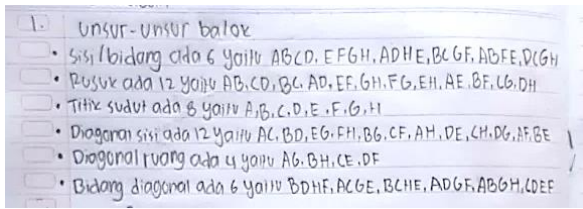 1. Unsur-unsur balok
• Sisi/bidang ada 6 yaitu ABCD, EFGH, ADHE, BCGF, ABFE, DCGH
• Rusuk ada 12 yaitu AB, CD, BC, AD, EF, GH, FG, EH, AE, BF, CG, DH
• Titik sudut ada 8 yaitu A, B, C, D, E, F, G, H
• Diagonal sisi ada 12 yaitu AC, BD, EG, FH, BG, CF, AH, DE, CH, DG, AF, BE
• Diagonal ruang ada 4 yaitu AG, BH, CE, DF
• Bidang diagonal ada 6 yaitu BDHF, ACGE, BCHE, ADGF, ABGH, CDEF